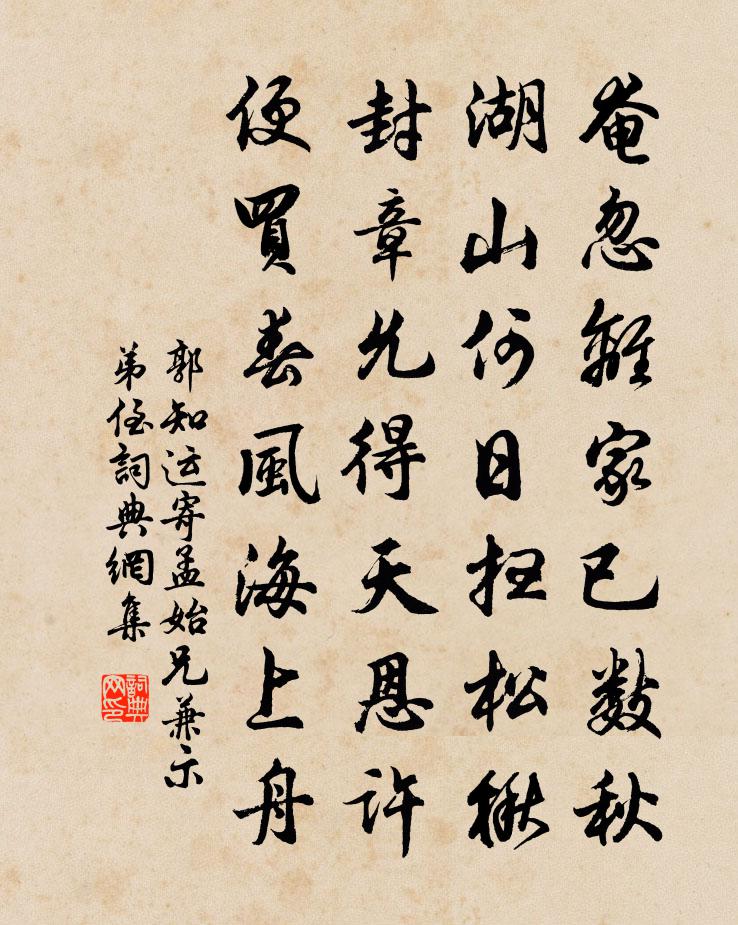 奄忽離家已數秋
湖山何日掃松楸
封章允得天恩許
便買春風海上舟
郭知运寄孟始兄兼示
弟侄詞典網集
詞典网印